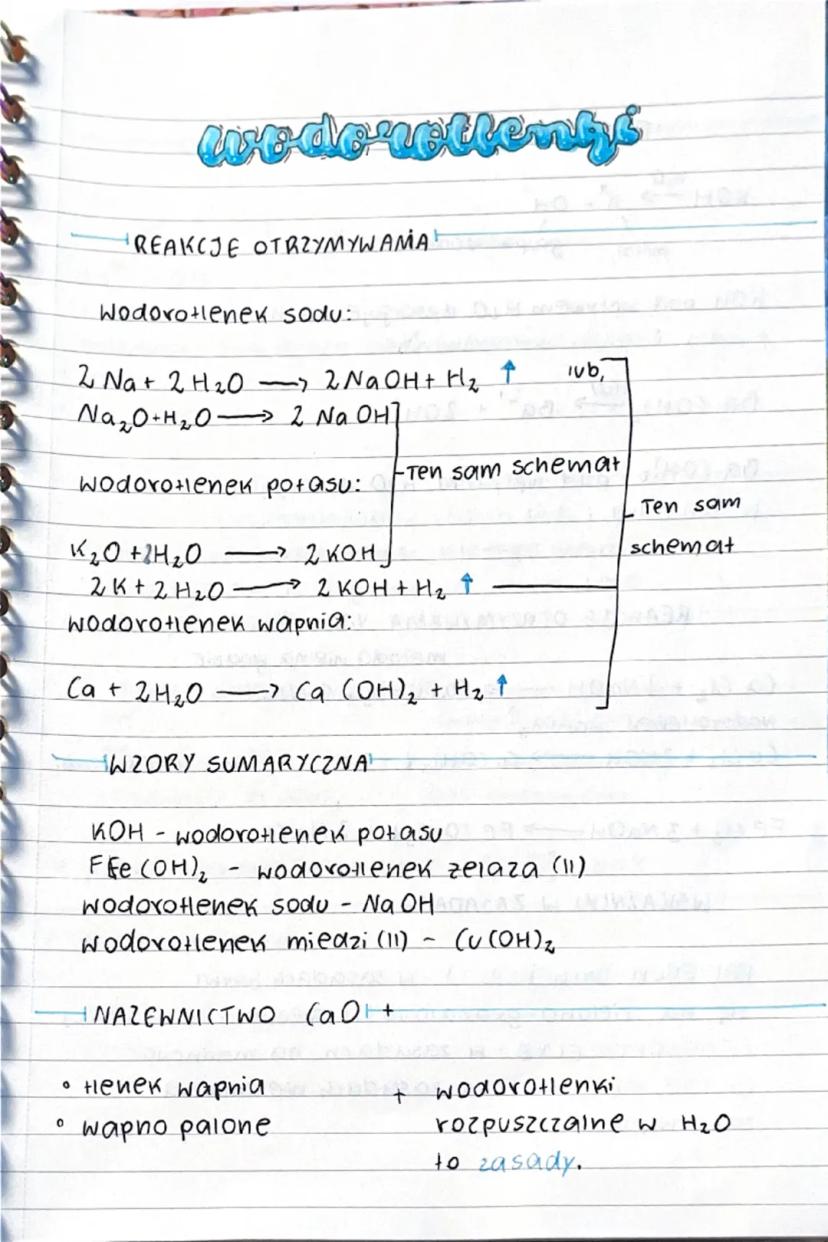 wodorotlenki
REAKCJE OTRZYMYWANIA
wodorotlenek sodu:
2 Na + 2 H₂O → 2 NaOH + H₂ ↑ lub,
Na₂O + H₂O → 2 NaOH
Ten sam schemat
wodorotlenek potasu:
Ten sam
schemat
K₂O + H₂O → 2 KOH
2 K + 2 H₂O → 2 KOH + H₂ ↑
wodorotlenek wapnia:
Ca + 2H₂O → Ca (OH)₂ + H₂ ↑
WZORY SUMARYCZNA
KOH - wodorotlenek potasu
FFe (OH)₂ - wodorotlenek żelaza (II)
wodorotlenek sodu - NaOH
wodorotlenek miedzi (II) - Cu(OH)₂
NAZEWNICTWO CaO +
° tlenek wapnia
° wapno palone
+ wodorotlenki
rozpuszczalne w H₂O
to zasady.